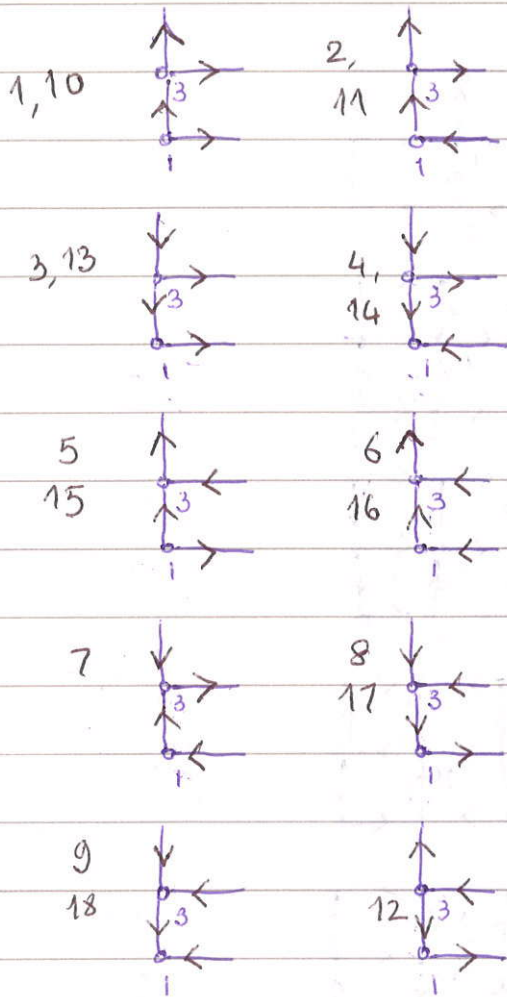 1,10
3
1
2,
11
3
1
3,13
3
1
4,
14
3
1
5
15
3
1
6
16
3
1
7
3
1
8
17
3
1
9
18
3
1
12
3
1